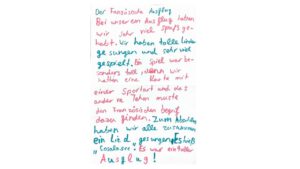 Der Französische Ausflug
Bei unserem Ausflug haben
wir sehr viel Spaß ge-
habt. Wir haben tolle Lieder
gesungen und sehr viel
gespielt. Ein Spiel war be-
sonders toll, denn wir
hatten eine Karte mit
einer Sportart und das
andere Team musste
den französischen begriff
dazu finden. Zum Abschluss
haben wir alle zusammen
ein Lied gesungen, es hieß
Es war ein toller
Ausflug!